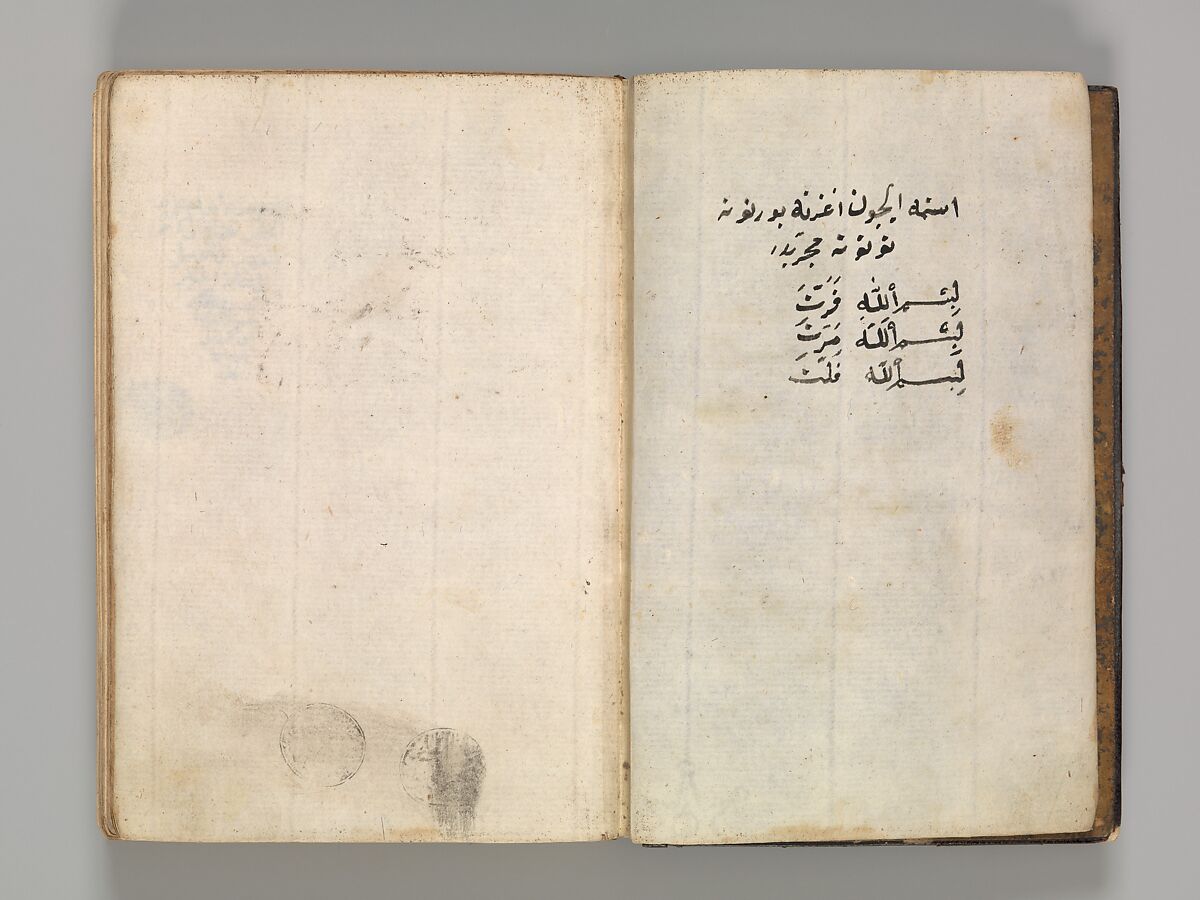 استمه ايچون اغزنه بورنونه
قوقونه مجربدر
بِسْمِ اللّٰهِ فَرَّتْ
بِسْمِ اللّٰهِ مَرَّتْ
بِسْمِ اللّٰهِ قَلَّتْ